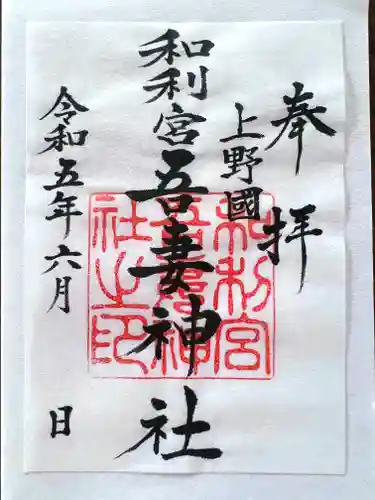 奉拝
上野國
和利宮吾妻神社
令和五年六月 日
和利宮
吾嬬神
社之印